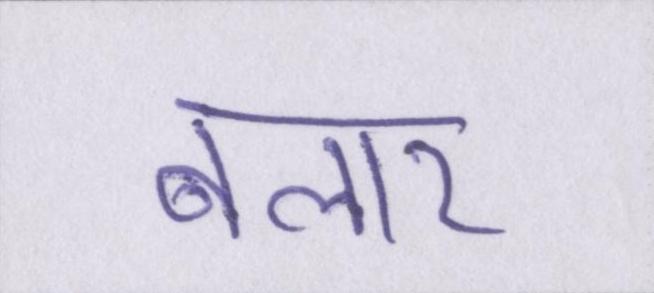 बलार